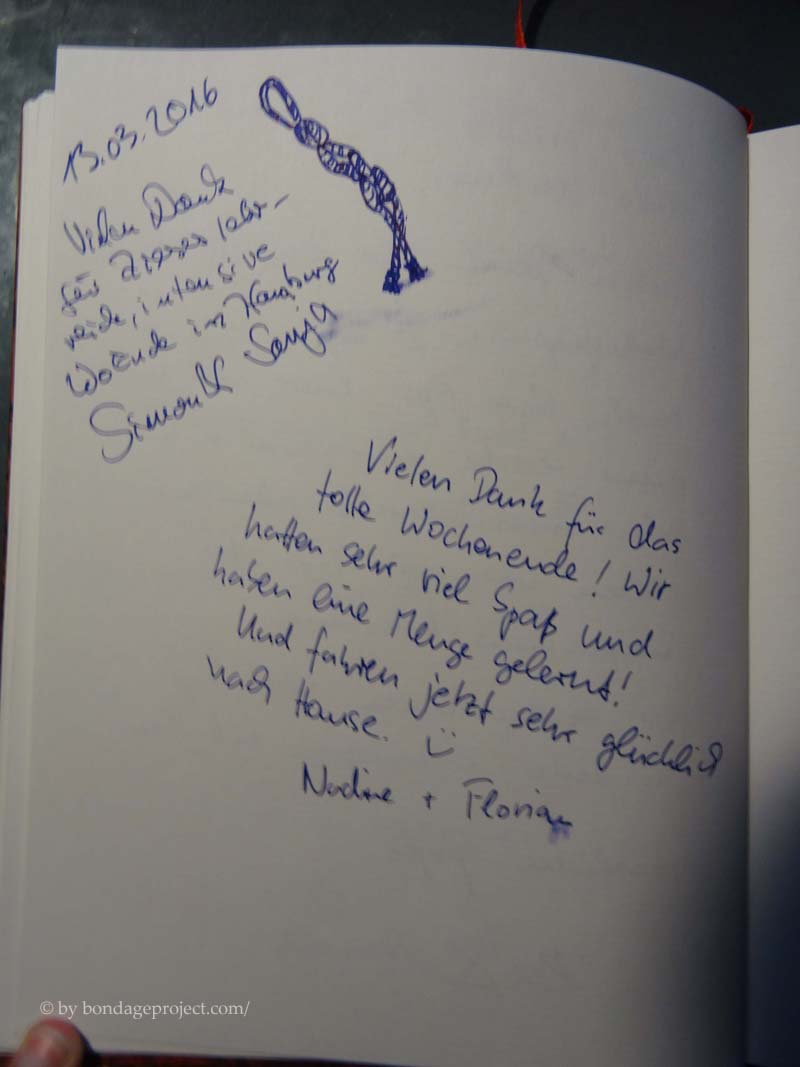 13.03.2016
Vielen Dank
für dieses lehr-
reiche, intensive
WoEnde in Hamburg
Simon & Sanja
Vielen Dank für das
tolle Wochenende! Wir
hatten sehr viel Spaß und
haben eine Menge gelernt!
Und fahren jetzt sehr glücklich
nach Hause. Ü
Nadine + Florian
© by bondageproject.com/